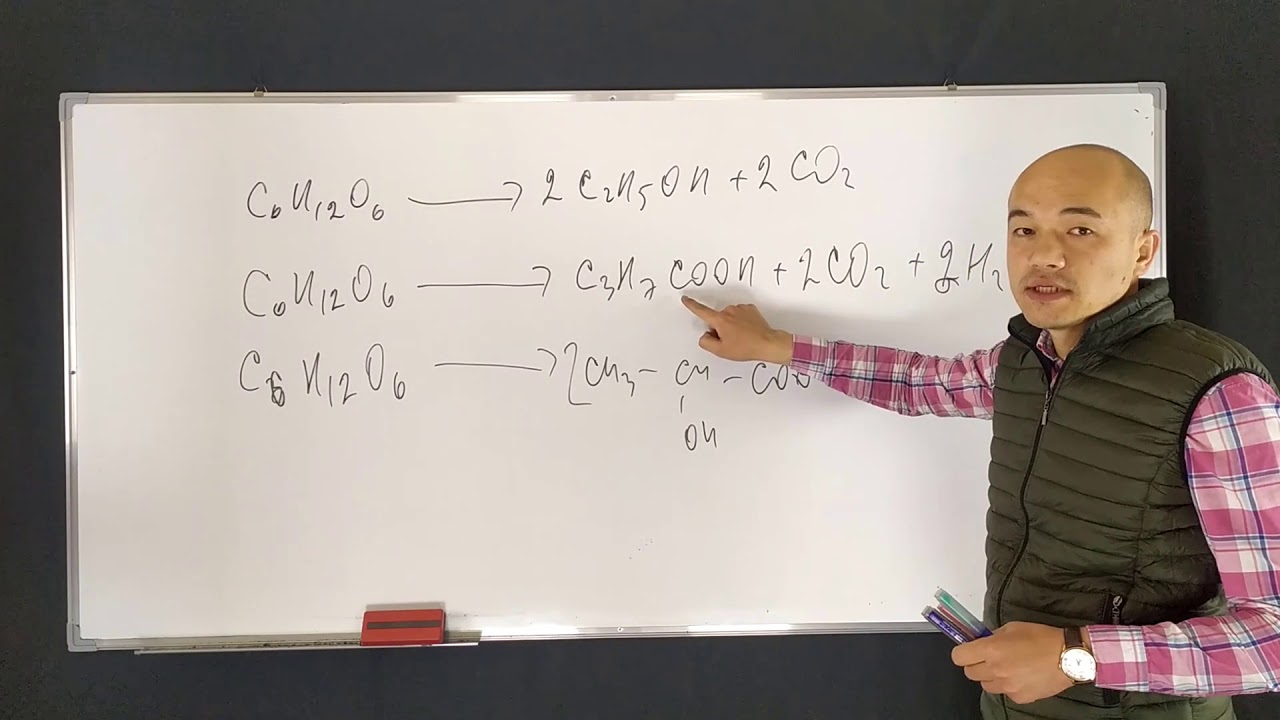 C₆H₁₂O₆ ⟶ 2 C₂H₅OH + 2 CO₂
C₆H₁₂O₆ ⟶ C₃H₇COOH + 2CO₂ + 2H₂
C₆H₁₂O₆ ⟶ 2CH₃ – CH – COO
OH